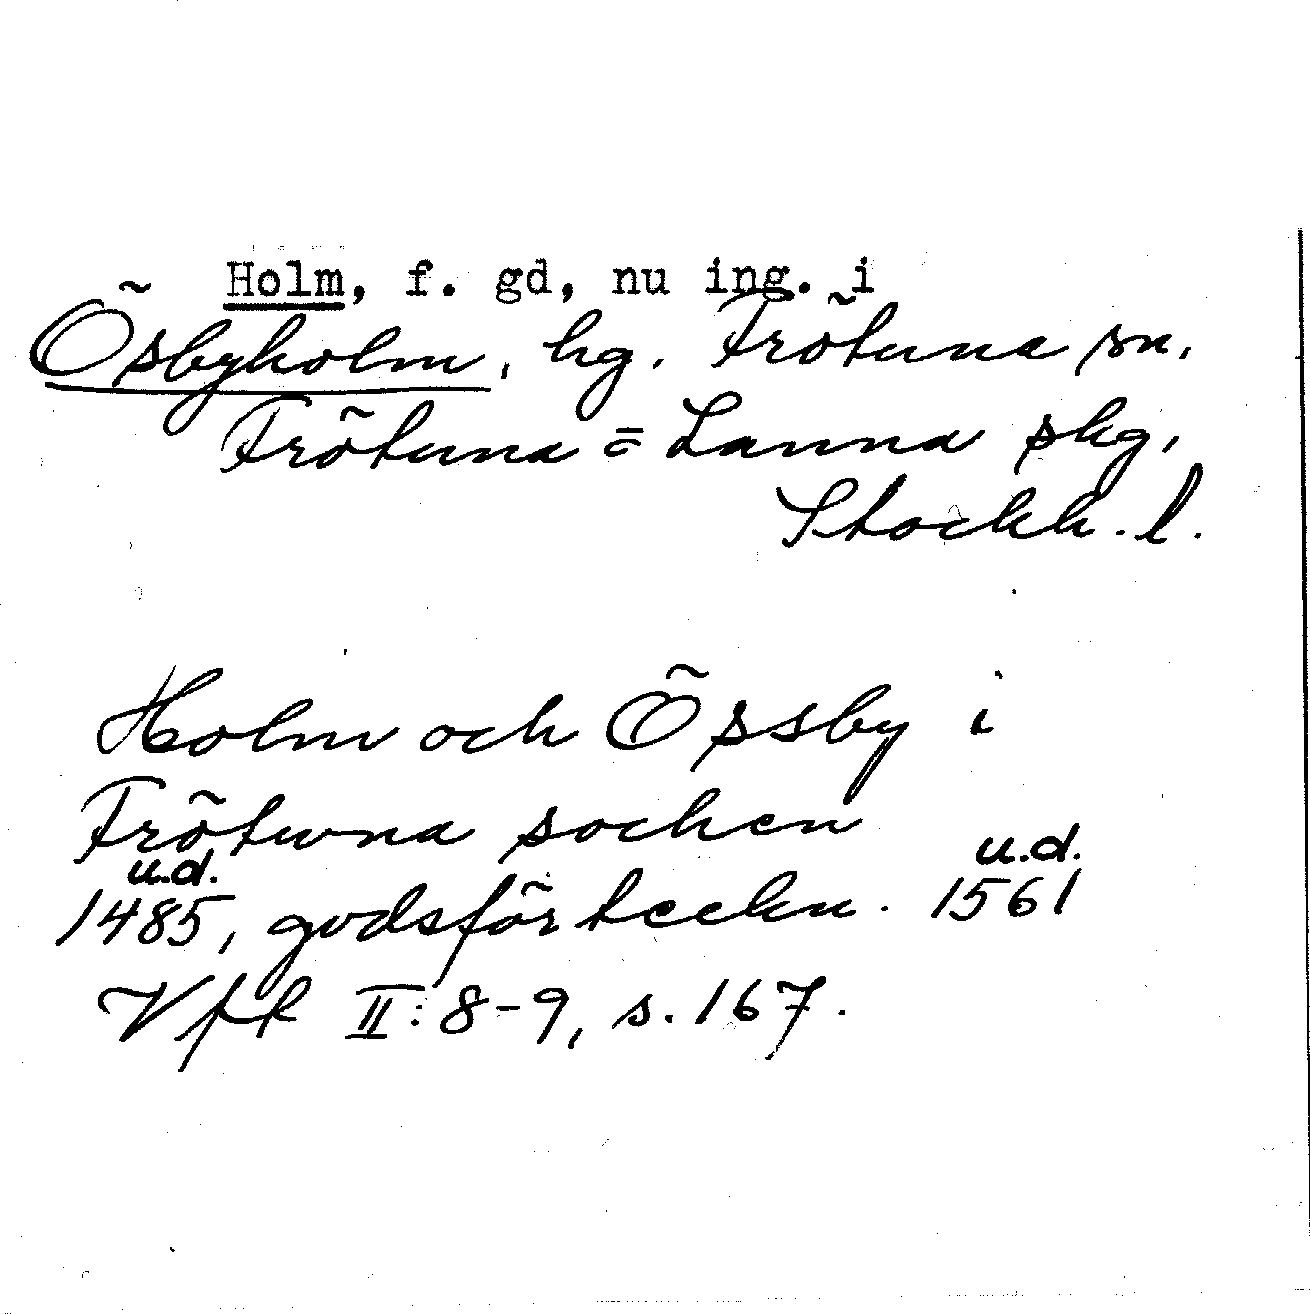 Holm, f. gd, nu ing. i
Ösbyholm, hg. Frötuna sn,
Frötuna = Lanna skg,
Stockh. l.
Holm och Össby i
Frötuna socken
u.d. u.d.
1485, godsförteckn. 1561
Vfr II: 8-9, s. 167.